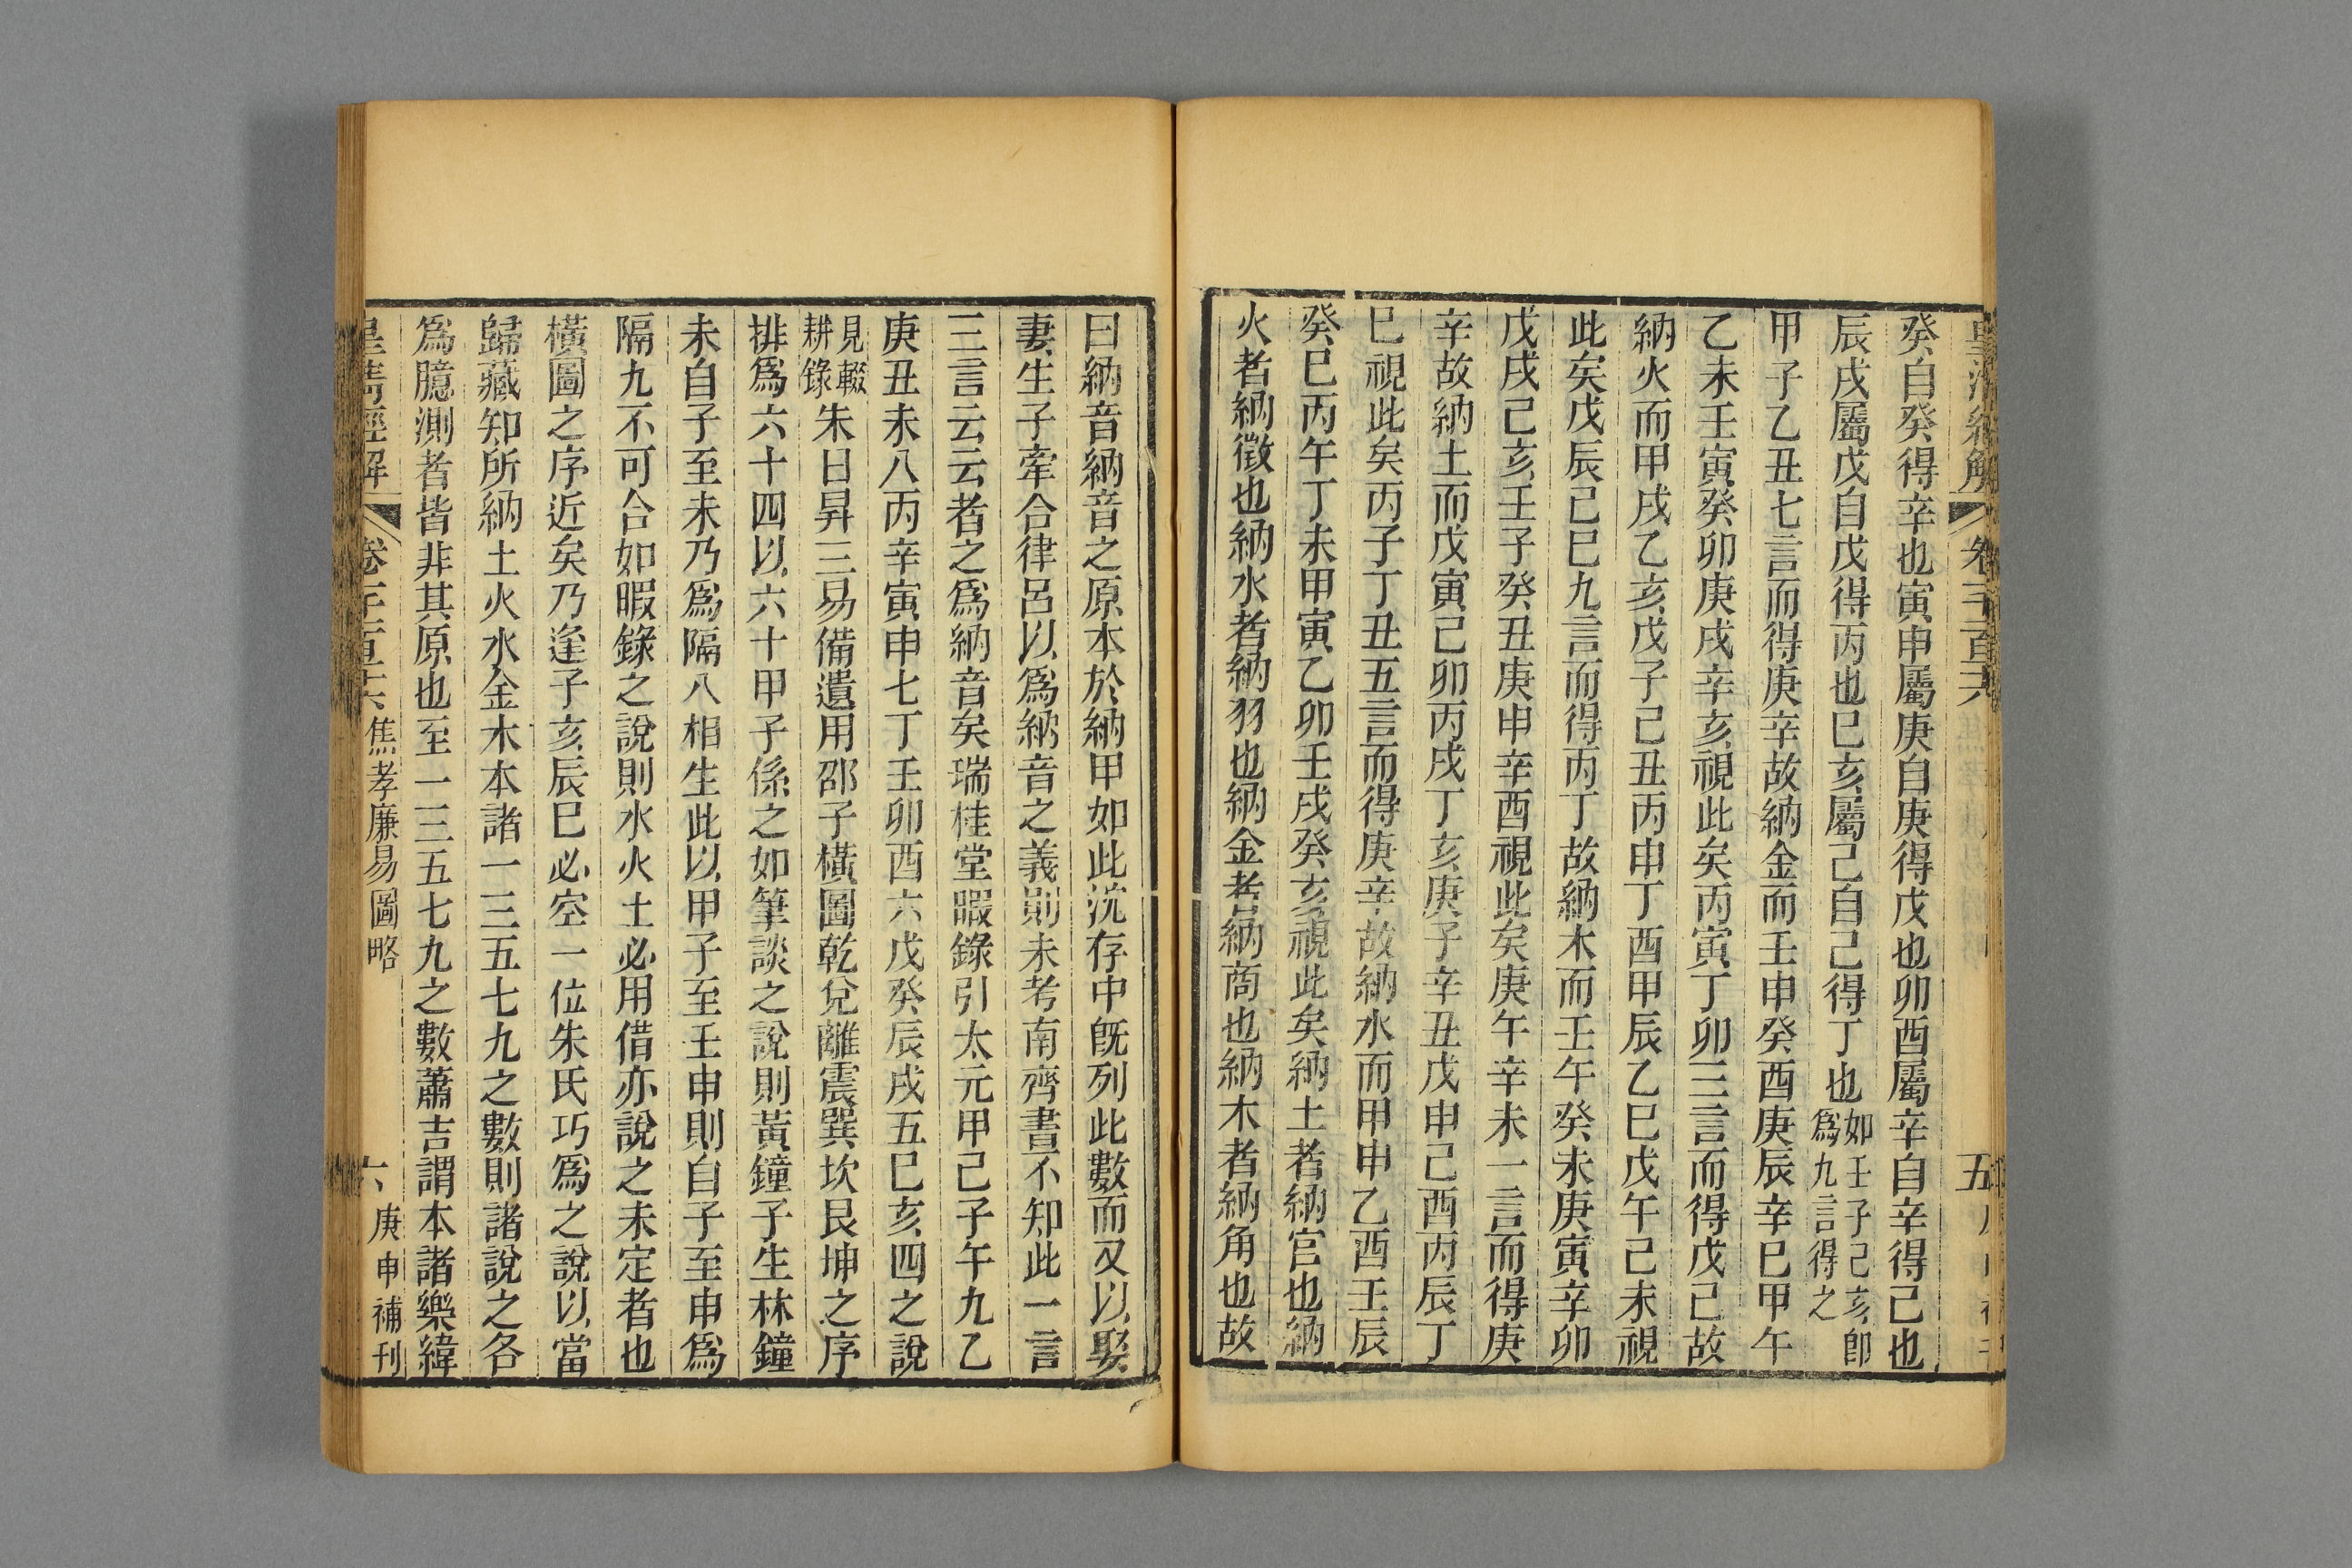 癸自癸得辛也寅申屬庚自庚得戊也卯酉屬辛自辛得己也
辰戌屬戊自戊得丙也巳亥屬己自己得丁也如壬子己亥卽
爲九言得之
甲子乙丑七言而得庚辛故納金而壬申癸酉庚辰辛巳甲午
乙未壬寅癸卯庚戌辛亥視此矣丙寅丁卯三言而得戊己故
納火而甲戌乙亥戊子己丑丙申丁酉甲辰乙巳戊午己未視
此矣戊辰己巳九言而得丙丁故納木而壬午癸未庚寅辛卯
戊戌己亥壬子癸丑庚申辛酉視此矣庚午辛未一言而得庚
辛故納土而戊寅己卯丙戌丁亥庚子辛丑戊申己酉丙辰丁
巳視此矣丙子丁丑五言而得庚辛故納水而甲申乙酉壬辰
癸巳丙午丁未甲寅乙卯壬戌癸亥視此矣納土者納宮也納
火者納徵也納水者納羽也納金者納商也納木者納角也故
曰納音納音之原本於納甲如此沈存中旣列此數而又以娶
妻生子牽合律呂以爲納音之義則未考南齊書不知此一言
三言云云者之爲納音矣瑞桂堂暇錄引太元甲己子午九乙
庚丑未八丙辛寅申七丁壬卯酉六戊癸辰戌五巳亥四之說
見輟
耕錄朱日昇三易備遺用邵子橫圖乾兌離震巽坎艮坤之序
排爲六十四以六十甲子係之如筆談之說則黃鐘子生林鐘
未自子至未乃爲隔八相生此以甲子至壬申則自子至申爲
隔九不可合如暇錄之說則水火土必用借亦說之未定者也
橫圖之序近矣乃逢子亥辰巳必空一位朱氏巧爲之說以當
歸藏知所納土火水金木本諸一三五七九之數則諸說之各
爲臆測者皆非其原也至一三五七九之數蕭吉謂本諸樂緯
皇淸經解 卷千一百六 焦孝廉易圖略 六 庚申補刊